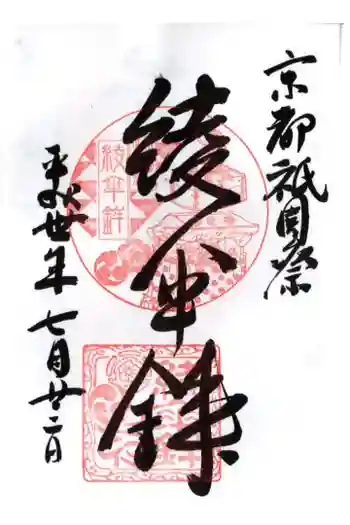 京都祇園祭
綾傘鉾
綾傘鉾
平成卅年七月廿二日